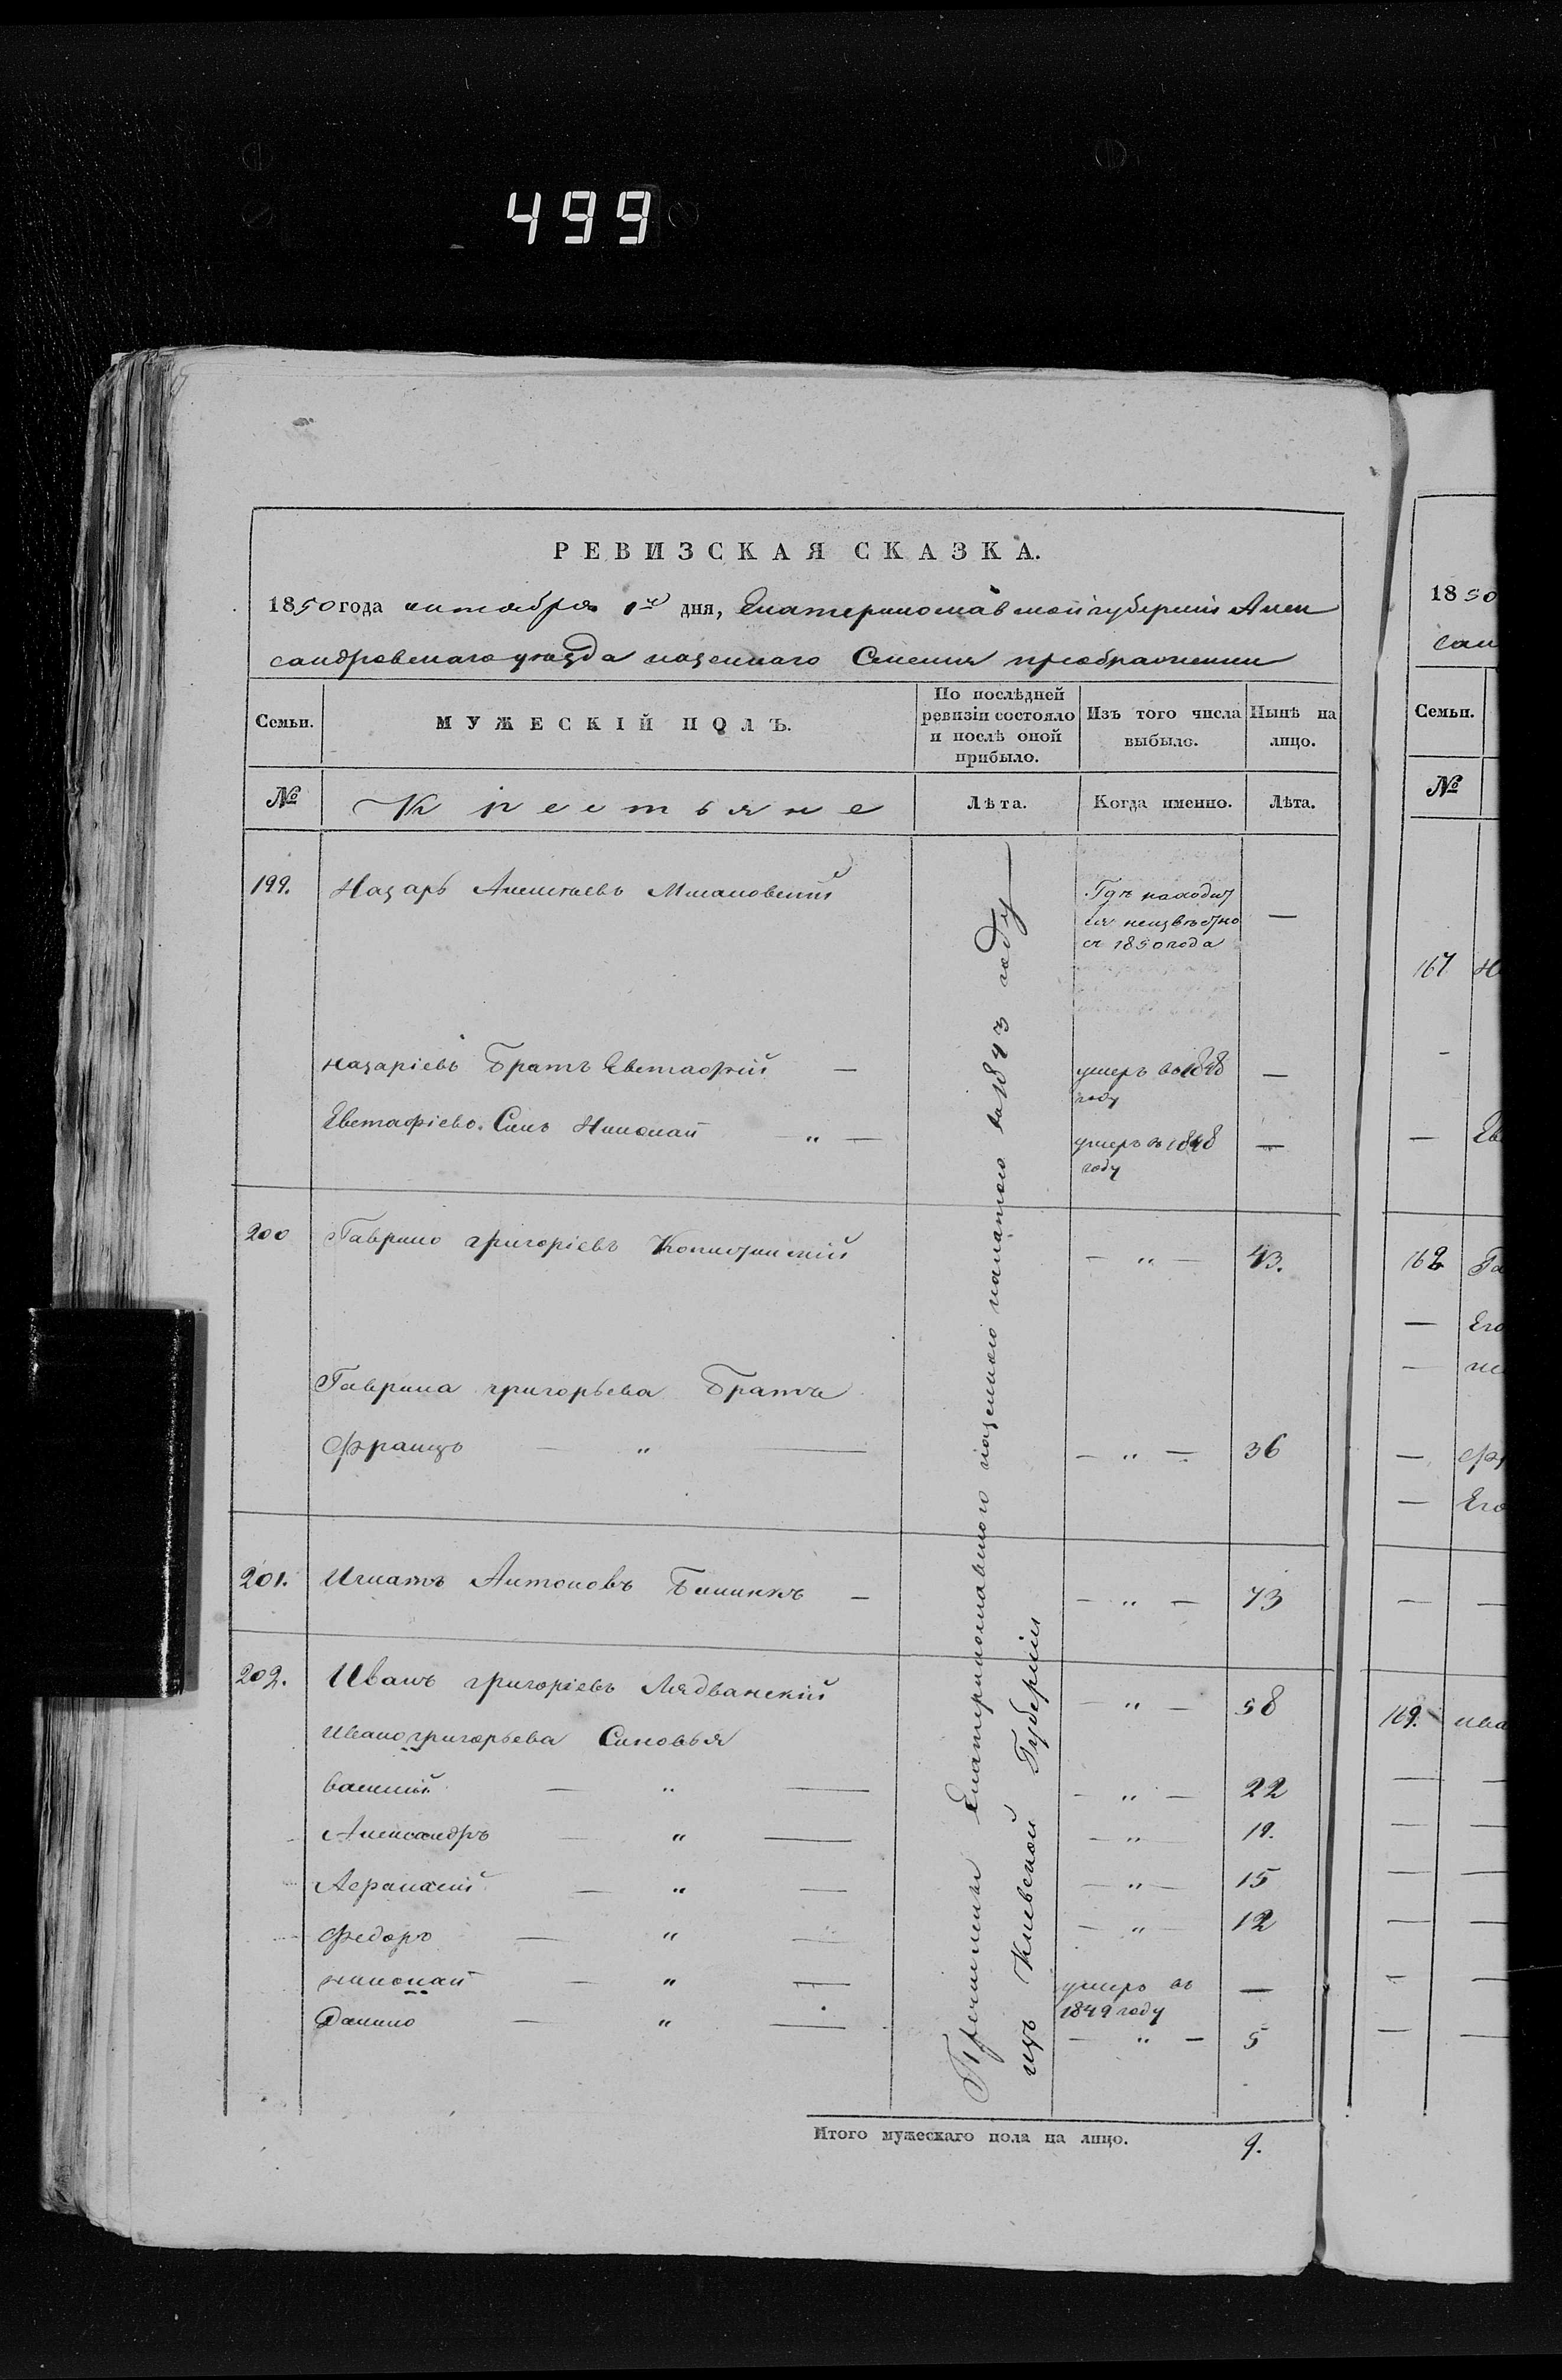 499
РЕВИЗСКАЯ СКАЗКА.
1850 года октября 1го дня, Екатеринославской губернии Алек
сандровскаго уезда казеннаго Селения преображенки
Семьи.
МУЖЕСКІЙ ПОЛЪ.
По послѣдней ревизіи состояло и послѣ оной прибыло.
Изъ того числа выбыло.
Нынѣ на лицо.
№
Крестьяне
Лѣта.
Когда именно.
Лѣта.
199.
Назаръ Алексѣевъ
Гдѣ находит
ся неизвѣстно
съ 1850 года
—
Назаріевъ Братъ Евстафій —
умеръ въ 1848
году
—
Евстафіевъ Сынъ Николай " —
умеръ въ 1848
году
—
200
Гаврило григоріевъ
— " —
43.
Гаврила григорьева Братъ
Францъ — " —
— " —
36
201.
Игнатъ Антоновъ —
— " —
73
202.
Иванъ григоріевъ Лядванскій
— " —
58
Ивана григорьева Сыновья
василій — " —
— " —
22
Александръ — " —
— " —
19.
Афанасій — " —
— " —
15
Федоръ — " —
— " —
12
николай — " —
умеръ въ
1849 году
—
Данило — " —
— " —
5
Причислены Екатеринославскою казенною палатою въ 1843 году
изъ Киевской Губерніи
Итого мужескаго пола на лицо.
9.
1850
сан
Семьи.
№
167
—
— Ев
162 Га
— Его
—
— Фр
— Его
—
169. ива